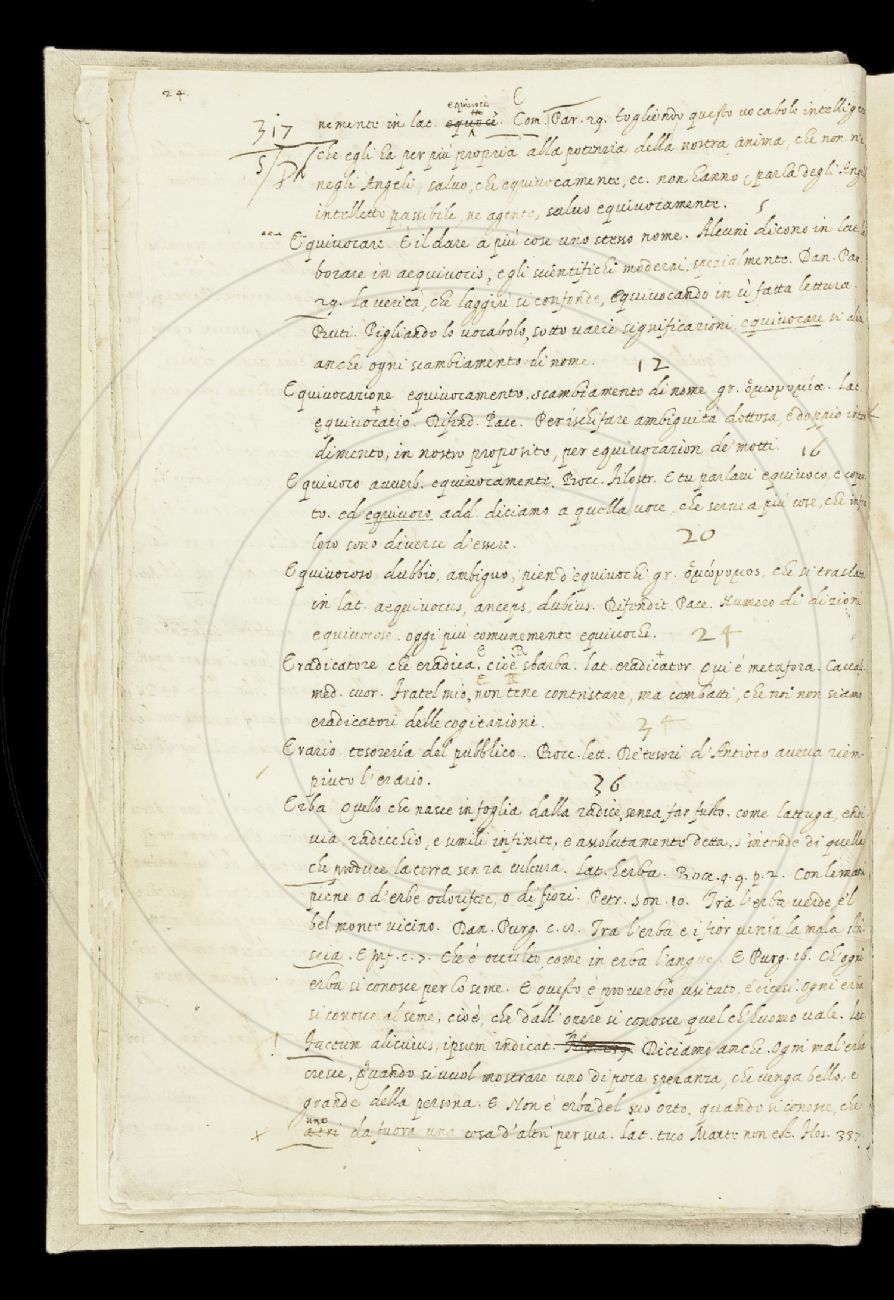 24.
equiuocè C
317 nemente in lat. equocè. Com. Par. 29. togliendo questo uocabolo intellige
5/ che egli ha per più propria alla potenzia della nostra anima, che non n'è
negli Angeli, salvo, che equiuocamente, ec. non hanno, parla degli Angeli
intelletto passibile, ne agente, saluo equiuocamente. 5
Equiuocare È il dare a più cose uno stesso nome. Alcuni dicono in lat.
borare in aequiuocis, e gli scientifichi moderni, spezialmente. Dan. Par.
29. La verità, che laggiù si confonde, Equiuocando in sì fatta lettura.
Buti. Pigliando lo vocabolo, sotto varie significazioni, equiuocare si
anche ogni scambiamento di nome. 12
Equiuocazione equiuocamento, scambiamento di nome gr. ὁμωνυμία. Lat.
equiuocatio. Difend. Pace. Per ischifare ambiguità dottosa, e doppio inten
dimento, in nostro proposito, per equiuocazion de' motti. 16
Equiuoco auuerb. equiuocamente. Bocc. Filostr. E tu parlavi equiuoco, e coper
to. ed equiuoco add. diciamo a quella uoce, che serue a più cose, che infra
loro sono diuerse d'essere. 20
Equiuocoso dubbio, ambiguo, pien d'equiuochi gr. ὁμώνυμος, che si traslata
in lat. aequiuocus, anceps, dubius. Difendit. Pace. Numero di dizioni
equiuocoso. oggi più comunemente equiuochi. 24
Eradicatore che eradica, cioè sbarba. lat. eradicator. Qui è metafora. Caual.
med. cuor. Fratel mio, non tene contristare, ma combatti, che noi non siamo
eradicatori delle cogitazioni. 34
Erario tesoreria del pubblico. Bocc. lett. De' tesori d'Antioco aueua riem
piuto l'erario. 36
Erba Quello che nasce in foglia dalla radice, senza far fusto. come lattuga, endi
uia, radicchio, e simili infinite, e assolutamente detta, s'intende di quella
che produce la terra senza cultura. Lat. herba. Bocc. g. 9. p. 2. Con le mani
piene o d'erbe odorifere, o di fiori. Petr. son. 10. Tra l'erba verde, e'l
bel monte vicino. Dan. Purg. c. 8. Tra l'erba e i fior venia la mala stri
scia. E Inf. c. 7. Che è occulto, come in erba l'angue. E Purg. 16. Ch'ogni
erba si conosce per lo seme. E questo è prouerbio usitato, e dicesi: ogni erba
si conosce al seme, cioè, che dall'opere si conosce quel ch'huomo uale. Lat.
! Factum alicuius, ipsum indicat. Diciamo anche. Ogni mal'erba
cresce, Quando si vuol mostrare uno di poca speranza, che uenga bello, e
grande della persona. E Non è erba del suo orto, quando si conosce, che
uno
x altri da fuora una cosa d'altri per sua. Lat. tuo Marte non est. Flos. 337